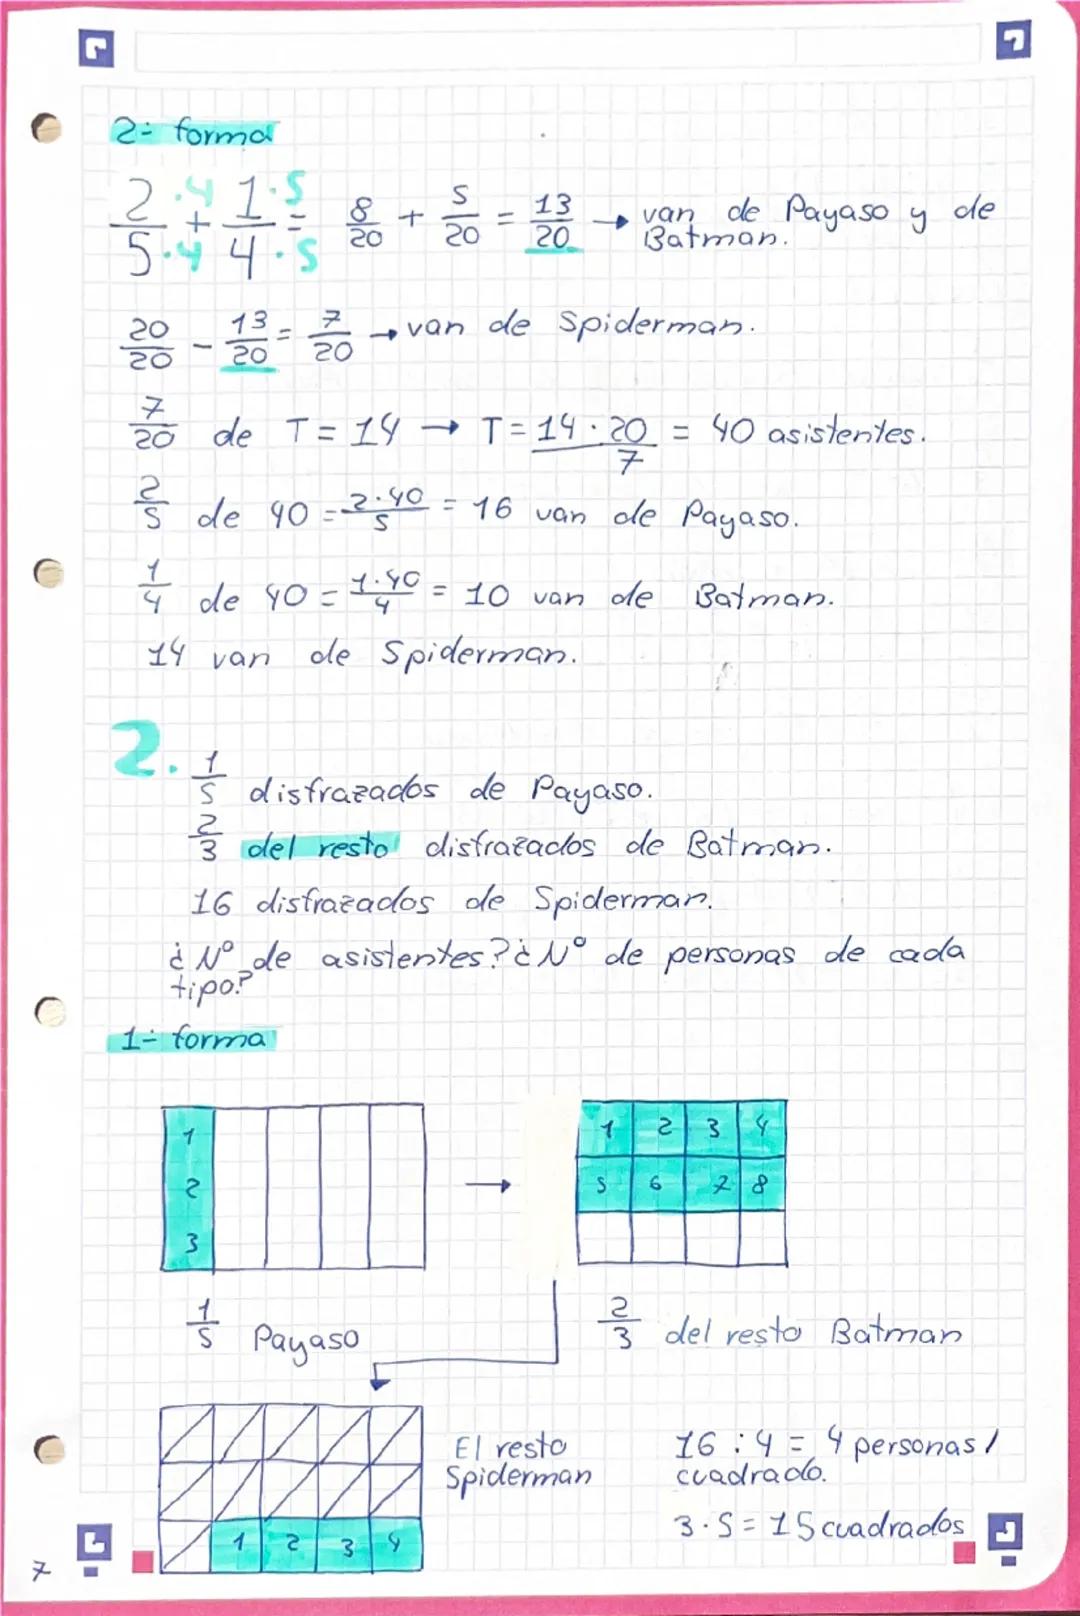 2ª forma
2·4/5·4 + 1·5/4·5 = 8/20 + 5/20 = 13/20 → van de Payaso y de
Batman.
20/20 - 13/20 = 7/20 → van de Spiderman.
7/20 de T = 14 → T = 14·20/7 = 40 asistentes.
2/5 de 40 = 2·40/5 = 16 van de Payaso.
1/4 de 40 = 1·40/4 = 10 van de Batman.
14 van de Spiderman.
2. 1/5 disfrazados de Payaso.
2/3 del resto disfrazados de Batman.
16 disfrazados de Spiderman.
¿Nº de asistentes? ¿Nº de personas de cada
tipo?
1ª forma
1
2
3
1 2 3 4
5 6 7 8
1/5 Payaso
2/3 del resto Batman
1 2 3 4
El resto
Spiderman
16 : 4 = 4 personas/
cuadrado.
3·5 = 15 cuadrados
7